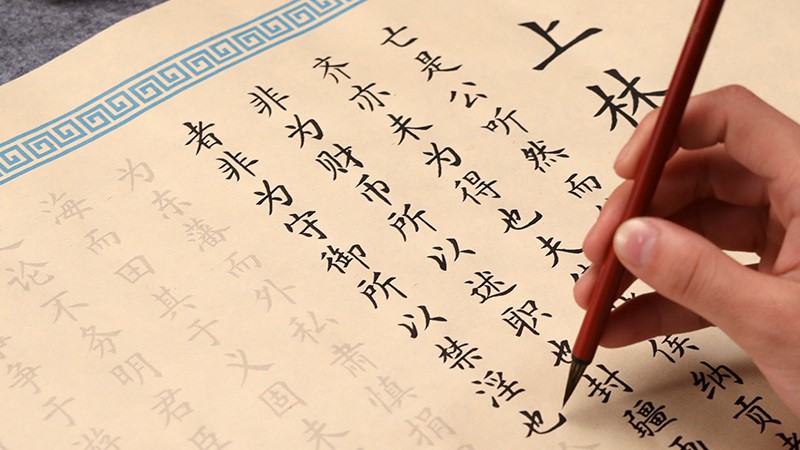 上林
亡是公听然而
齐亦未为得也夫
侯纳贡
非为财币所以述职也封疆
者非为守御所以禁淫也
为东藩而外私肃慎捐
海而田其于义固未
论不务明君臣
争于游